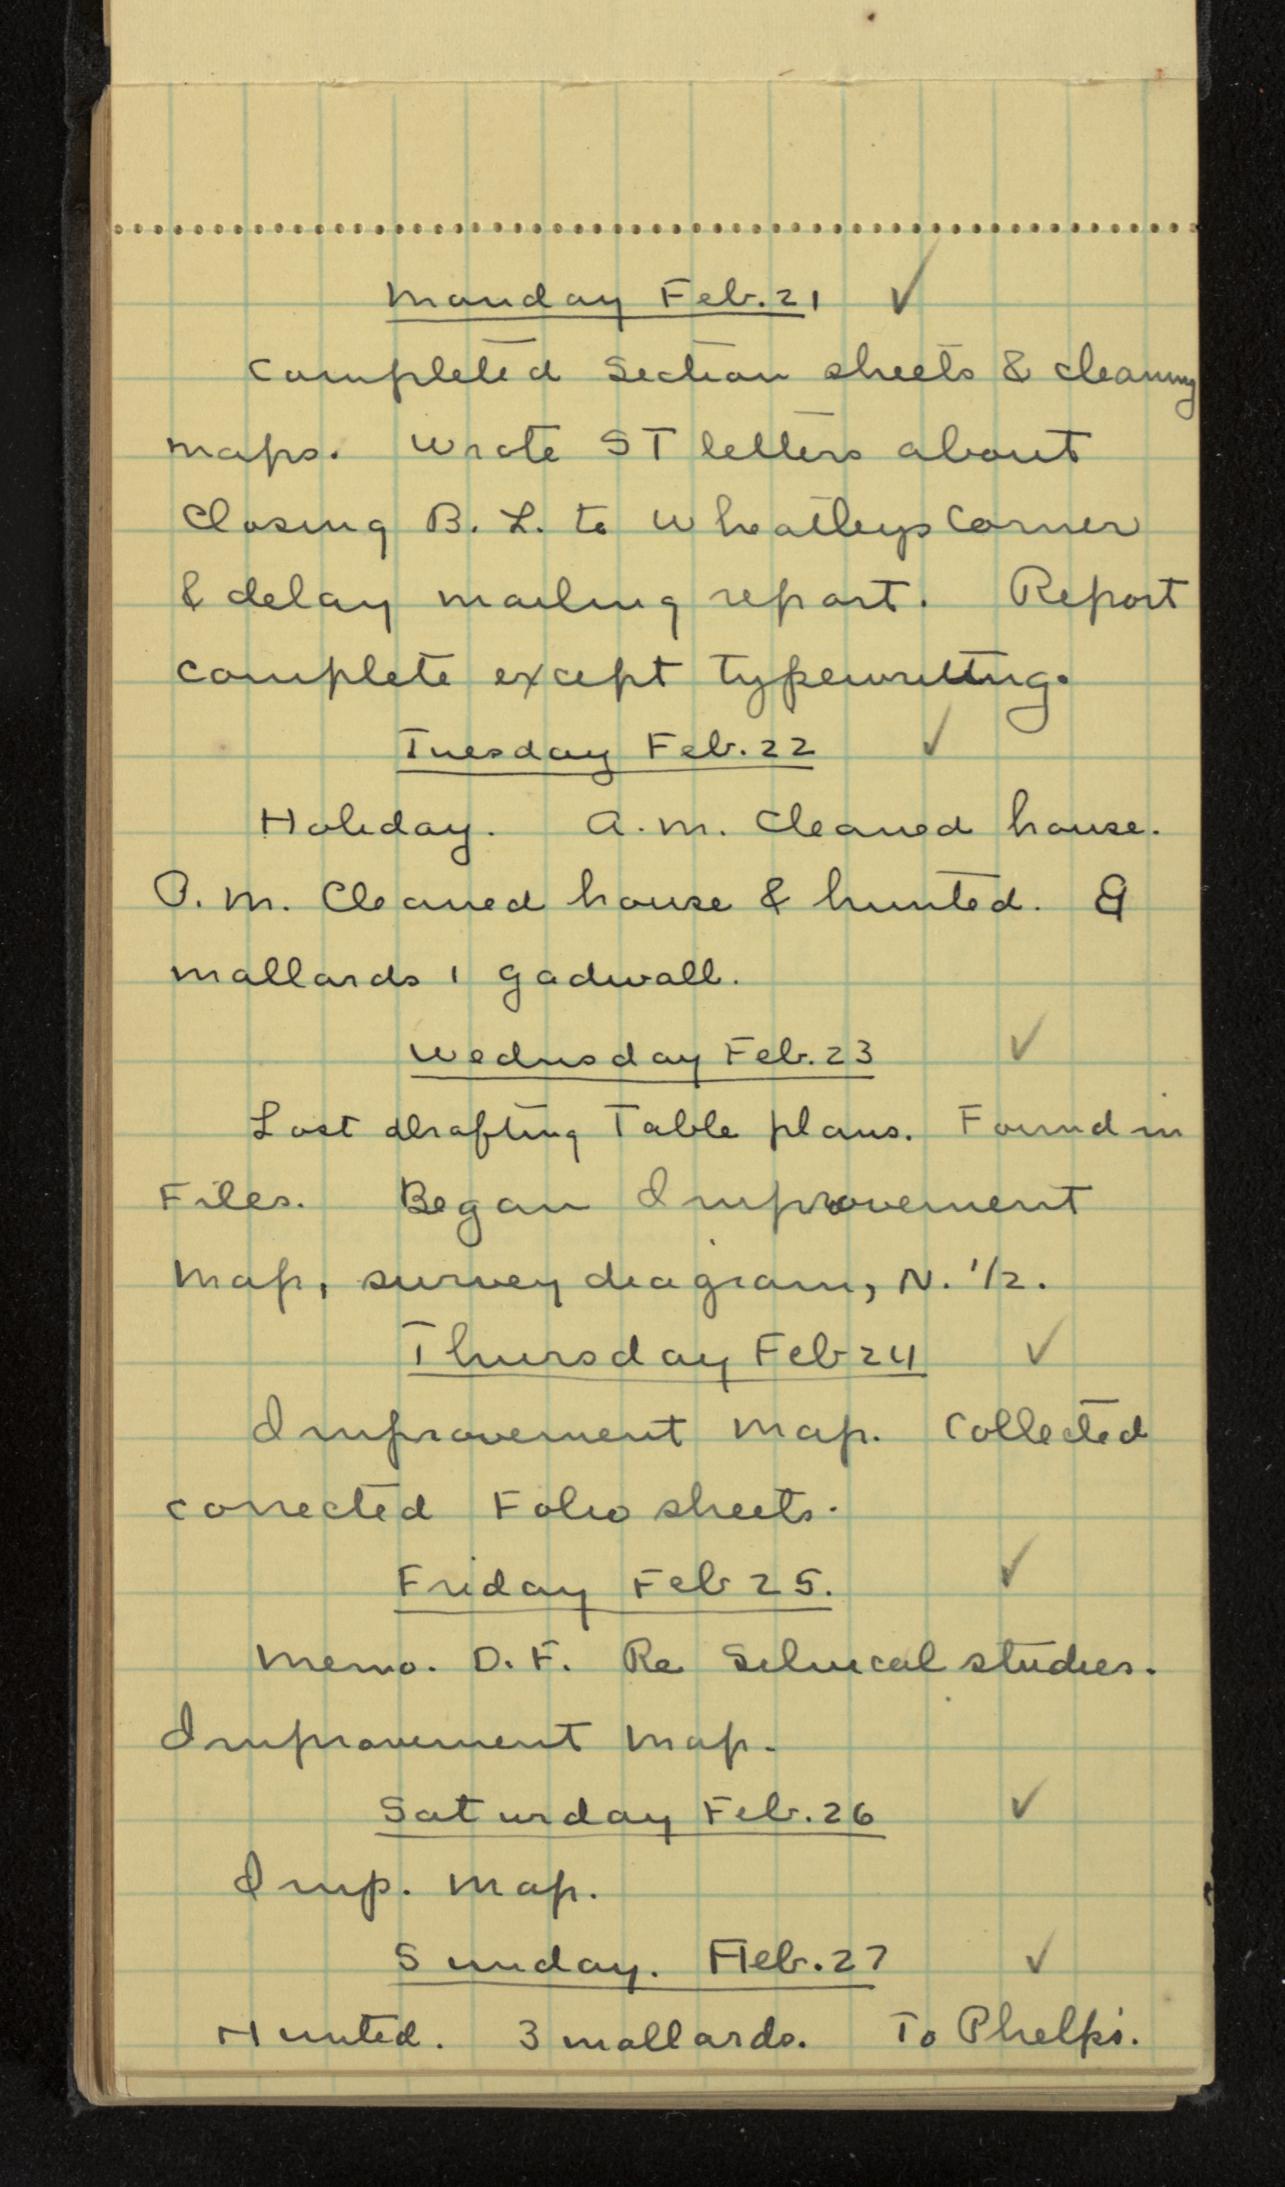 Monday Feb. 21 ✓
Completed Section sheets & cleaning
maps. Wrote ST letters about
closing B. L. to Wheatleys Corner
& delay mailing report. Report
complete except typewriting.
Tuesday Feb. 22 ✓
Holiday. A.M. Cleaned house.
P.M. Cleaned house & hunted.
mallards 1 gadwall.
Wednsday Feb. 23 ✓
Lost drafting Table plans. Found in
Files. Began Improvement
Map, survey diagram, N. 1/2.
Thursday Feb 24 ✓
Improvement Map. Collected
corrected Folio sheets.
Friday Feb 25. ✓
Memo. D.F. Re Silvical studies.
Improvement Map.
Saturday Feb. 26 ✓
Imp. Map.
Sunday. Feb. 27 ✓
Hunted. 3 mallards. To Phelps'.